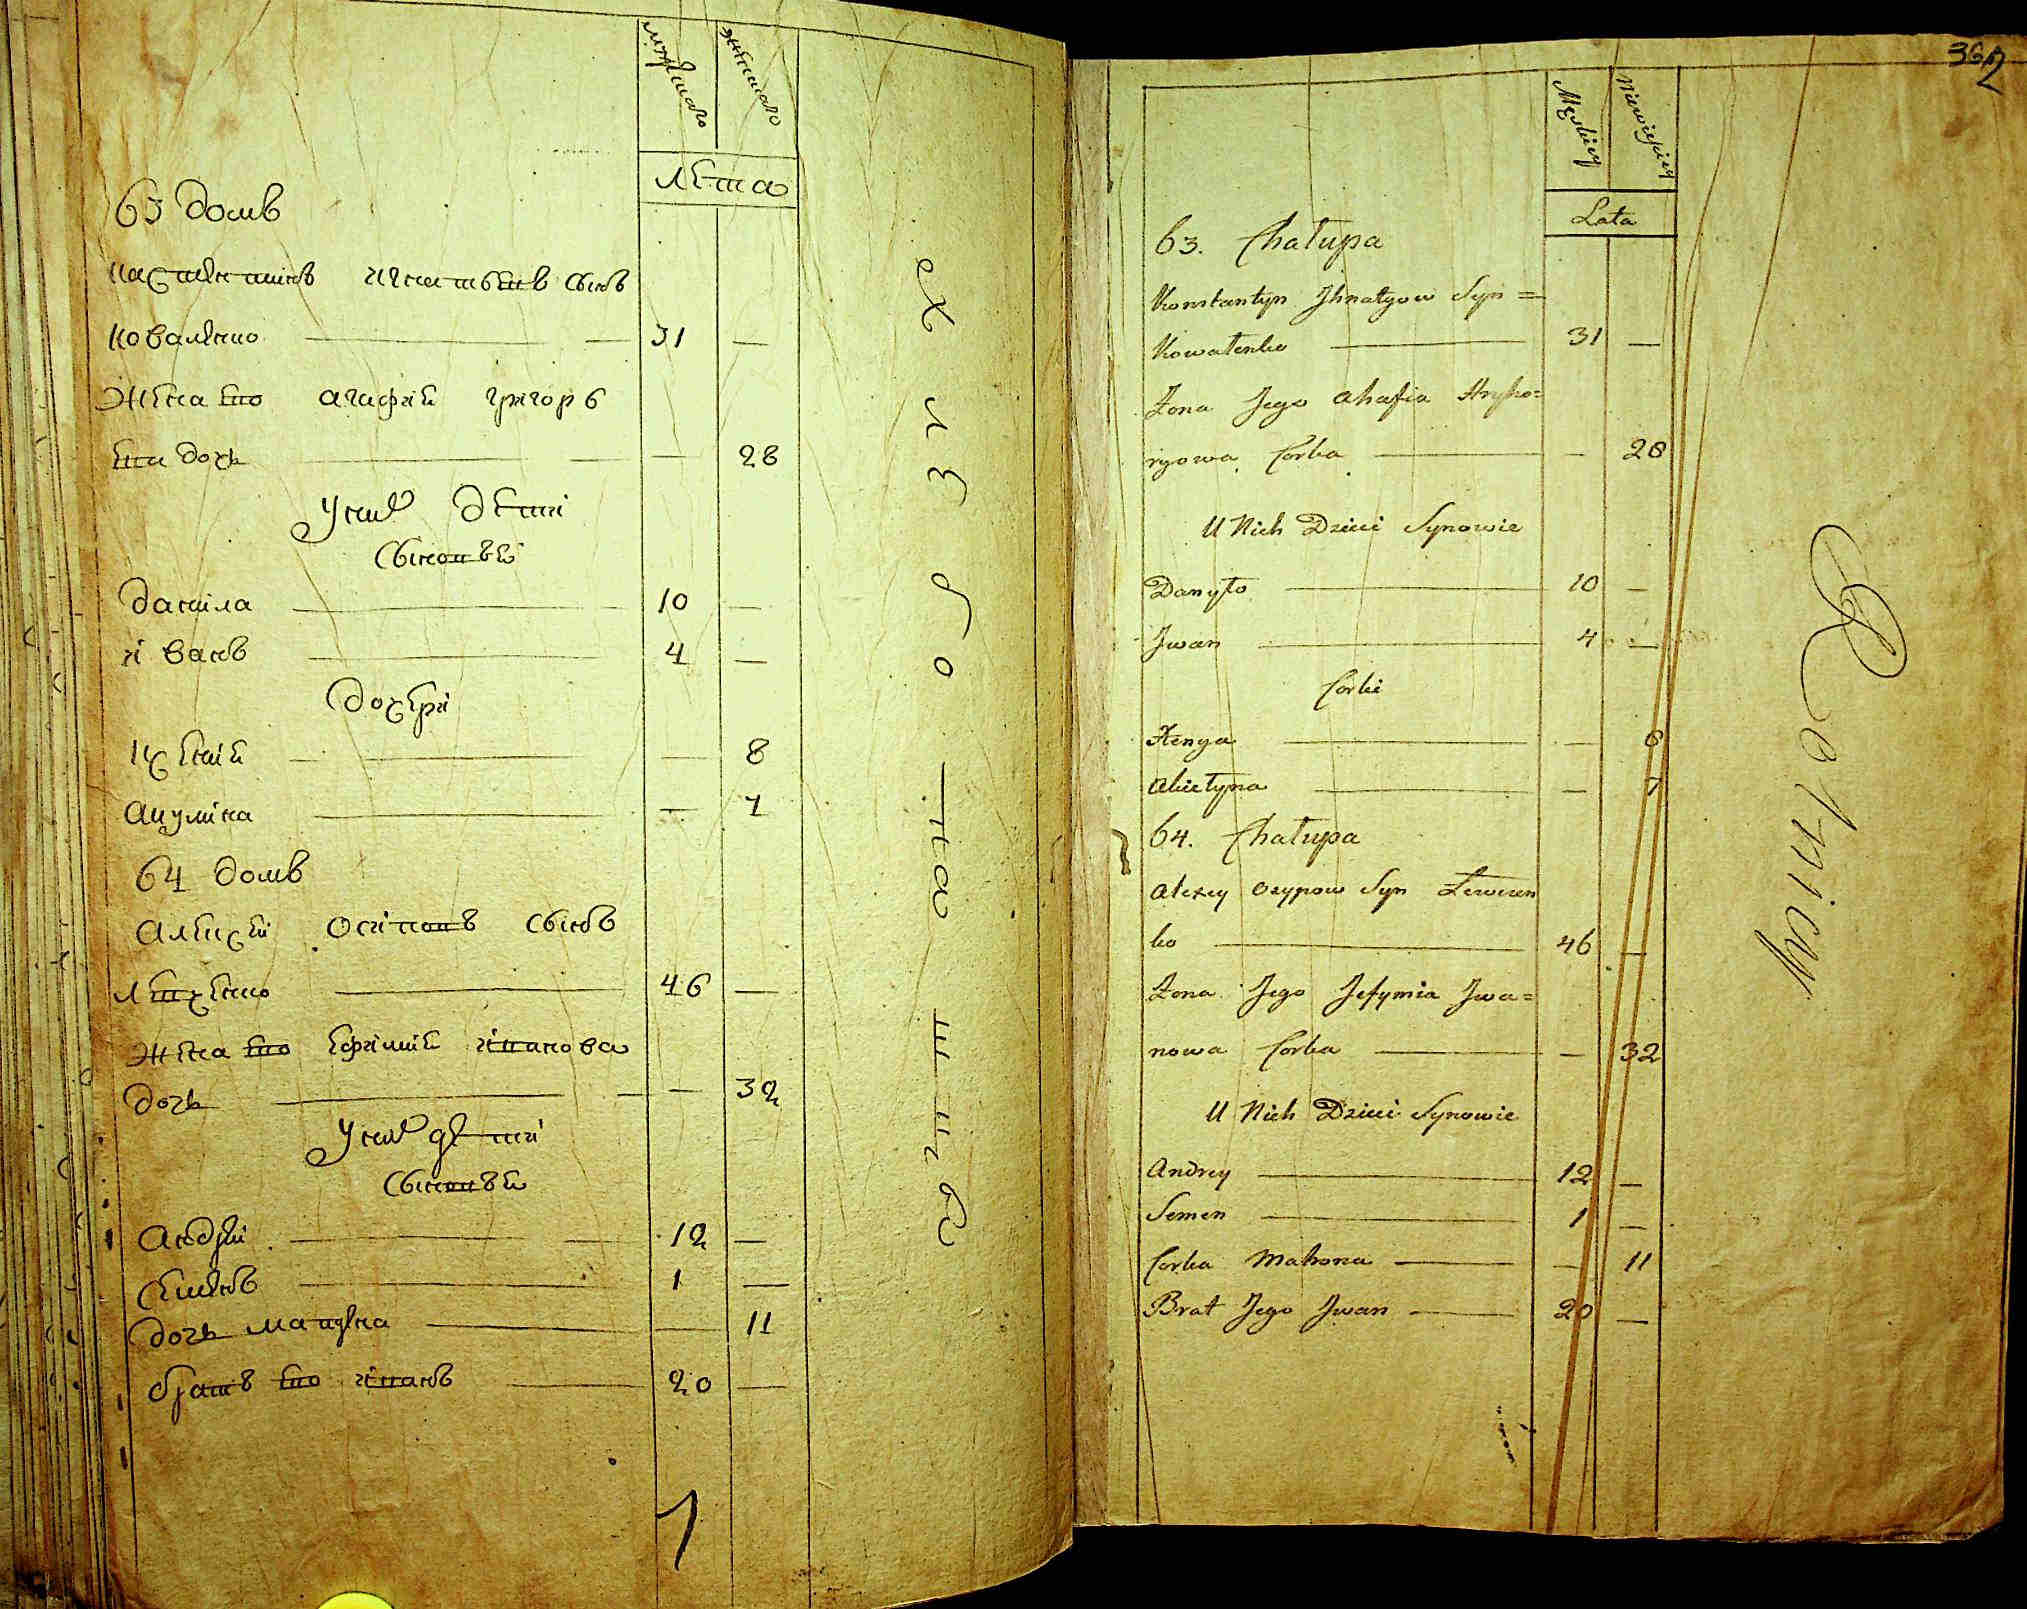 мужеска женска
Лета
63 домъ
Костентинъ Игнатьевъ сынъ
Коваленко — 31 —
Жена ево Агафия Григорь
ева дочь — — 28
У них дети
Сыновья
Данила — 10 —
Иванъ — 4 —
Дочери
Ксения — — 8
Акулина — — 7
64 домъ
Алексей Осиповъ сынъ
Левченко — 46 —
Жена ево Ефимия Иванова
дочь — — 32
У них дети
Сыновья
Андрей — 12 —
Семенъ — 1 —
дочь Матрена — — 11
братъ ево Иванъ — 20 —
Хлебопашец
367
Męskiey Niewieskiey
Lata
63. Chałupa
Konstantyn Jhnatyow Syn =
Kowalenko — 31 —
Żona Jego Ahafia Hryho=
ryowa Corka — — 28
U Nich Dzieci Synowie
Danyło — 10 —
Jwan — 4 —
Corki
Xenya — — 8
Akiełyna — — 7
64. Chałupa
Alexey Osypow Syn Lewczen
ko — 46 —
Żona Jego Jefymia Jwa=
nowa Corka — — 32
U Nich Dzieci Synowie
Andrey — 12 —
Semen — 1 —
Corka Matrona — — 11
Brat Jego Jwan — 20 —
Rolnicy